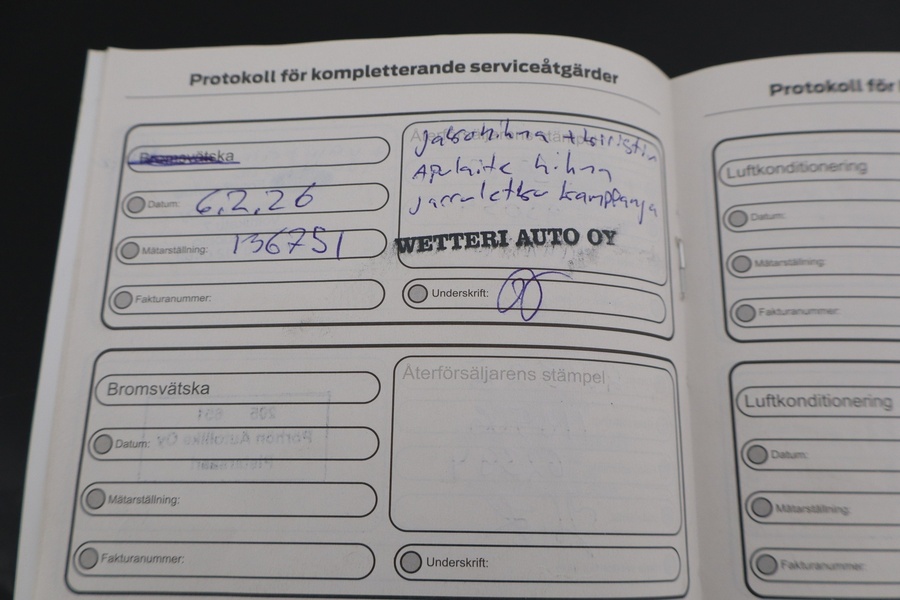 Protokoll för kompletterande serviceåtgärder
Bromsvätska
Datum: 6.2.26
Mätarställning: 136751
Fakturanummer:
Jakohihna + kiristin
Apulaite hihna
Jarruletku kamppanja
WETTERI AUTO OY
Underskrift:
Bromsvätska
Datum:
Mätarställning:
Fakturanummer:
Återförsäljarens stämpel
Underskrift:
Protokoll för
Luftkonditionering
Datum:
Mätarställning:
Fakturanummer:
Luftkonditionering
Datum:
Mätarställning:
Fakturanummer: